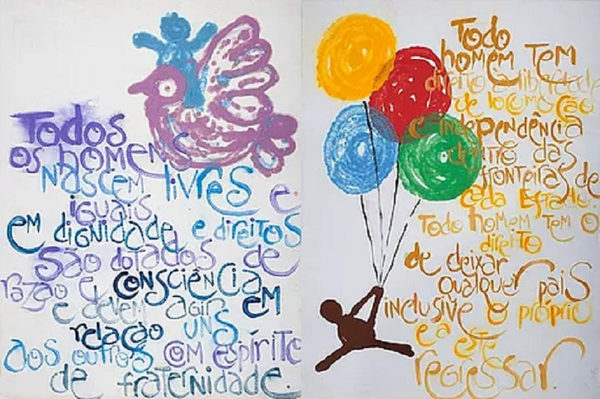 Todos
os homens
nascem livres e
iguais
em dignidade e direitos
São dotados de
razão e consciência
e devem agir em
relação uns
aos outros com espírito
de fraternidade.
Todo
homem tem
direito à liberdade
de locomoção
e independência
dentro das
fronteiras de
cada Estado.
Todo homem tem o
direito
de deixar
qualquer país
inclusive o próprio
e a este
regressar.